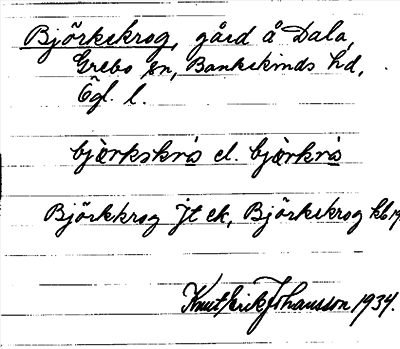 Björkskrog, gård å Dala,
Grebo sn, Bankekinds hd,
Ögl. l.
bjœrkskrɷs el. bjœrkrɷs
Björkkrog Jt ek, Björkskrog kb
Knut Erik Johansson 1934.